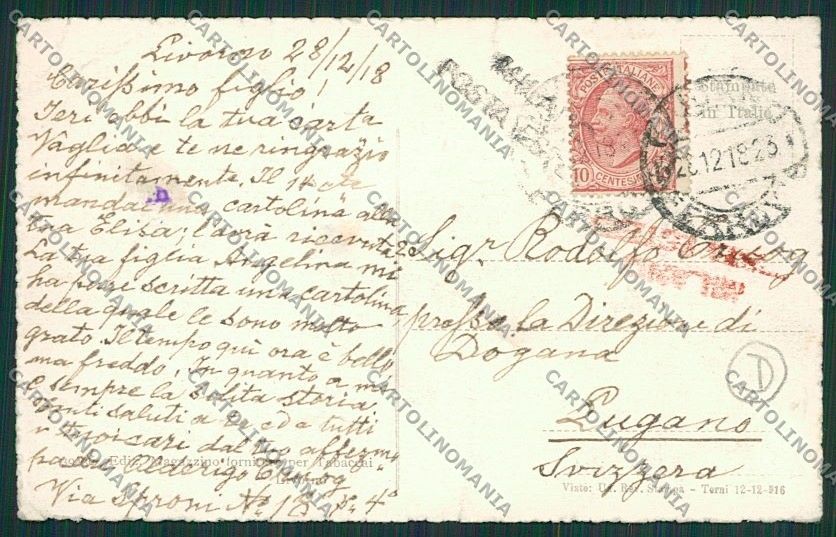 Livorno 28/12/18
Carissimo figlio!
Ieri ebbi la tua carta
Vaglia e te ne ringrazio
infinitamente. Il 14 cte
mandai una cartolina alla
tua Eliza; l'avrà ricevuta?
La tua figlia Angelina mi
ha pure scritta una cartolina
della quale le sono molto
grato. Il tempo qui ora è bello
ma freddo. In quanto a me
è sempre la solita storia
saluti a te ed a tutti
i tuoi cari dal tuo affezmo
padre Federigo
Via Sproni No. 10 po. 4o
Ediz. Magazzino forniture per Tabaccai
POSTE ITALIANE
10 CENTESIMI
POSTA
28.12.18.23
Stampato
in Italia
Sigr. Rodolfo
presso la Direzione di
Dogana
Lugano
Svizzera
D
Visto: Uff. Rev. Stampa - Terni 12-12-916
CARTOLINOMANIA